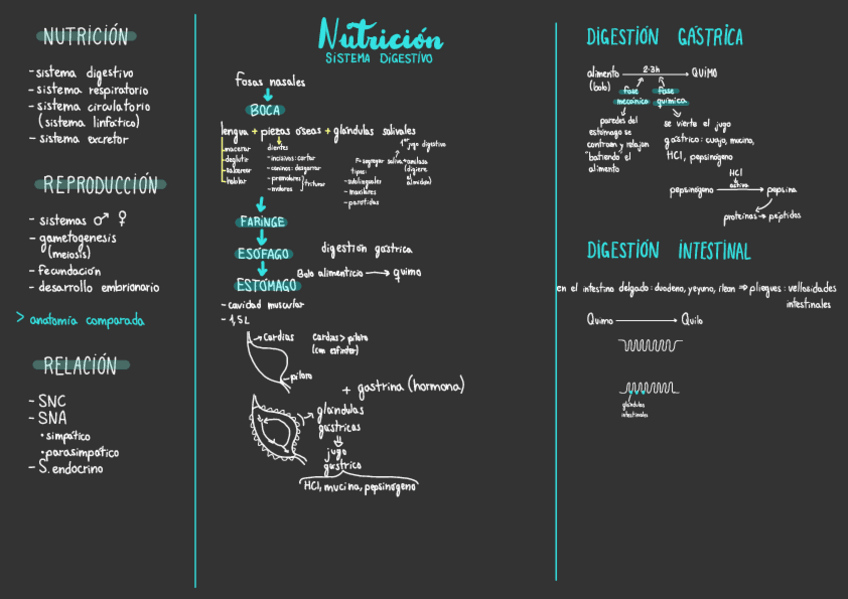 NUTRICIÓN
- sistema digestivo
- sistema respiratorio
- sistema circulatorio
(sistema linfático)
- sistema excretor
REPRODUCCIÓN
- sistemas ♂ ♀
- gametogenesis
(meiosis)
- fecundación
- desarrollo embrionario
> anatomía comparada
RELACIÓN
- SNC
- SNA
• simpático
• parasimpático
- S. endocrino
Nutrición
SISTEMA DIGESTIVO
fosas nasales
BOCA
lengua + piezas óseas + glándulas salivales
macerar
deglutir
saborear
hablar
dientes
- incisivos: cortar
- caninos: desgarrar
- premolares
- molares
} triturar
1er jugo digestivo
F = segregar saliva → amilasa
(digiere almidón)
tipos:
- sublinguales
- maxilares
- parótidas
FARINGE
ESÓFAGO
ESTÓMAGO
digestión gástrica
Bolo alimenticio → quimo
- cavidad muscular
- 1,5L
→ Cardias
cardias > píloro
(cm esfínter)
píloro
+ gastrina (hormona)
glándulas
gástricas
⇓
jugo
gástrico
HCl, mucina, pepsinógeno
DIGESTIÓN GÁSTRICA
alimento → QUIMO
2-3h
(bolo)
fase
mecánica
fase
química
paredes del
estómago se
contraen y relajan
"batiendo el
alimento
se vierte el jugo
gástrico: cuajo, mucina,
HCl, pepsinógeno
HCl
activa
pepsinógeno → pepsina
proteínas → péptidos
DIGESTIÓN INTESTINAL
en el intestino delgado: duodeno, yeyuno, íleon ⇒ pliegues: vellosidades
intestinales
Quimo → Quilo
glándulas
intestinales